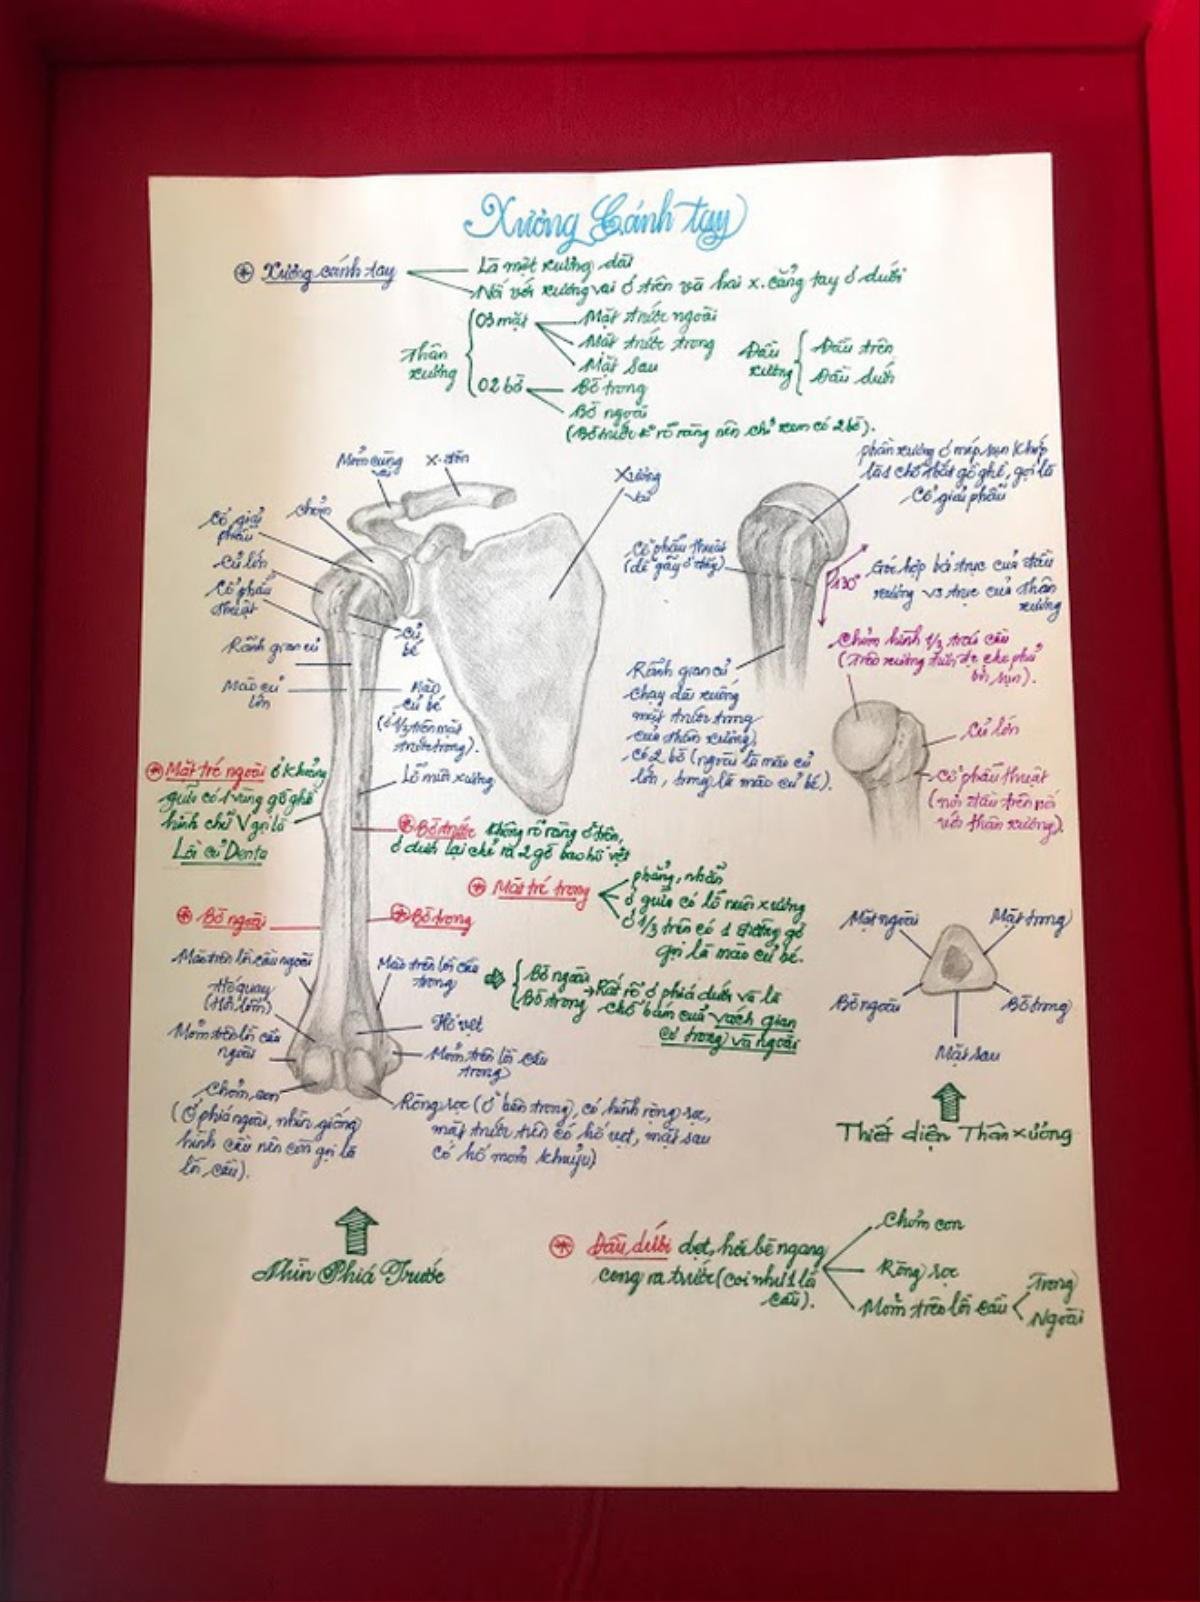 Xương Cánh tay
Xương cánh tay
Là một xương dài
Nối với xương vai ở trên và hai x. cẳng tay ở dưới
Thân
xương
03 mặt
Mặt trước ngoài
Mặt trước trong
Mặt sau
02 bờ
Bờ trong
Bờ ngoài
(Bờ trước k rõ ràng nên chỉ xem có 2 bờ).
Đầu
xương
Đầu trên
Đầu dưới
Mỏm cùng
vai
X. đòn
Xương
vai
chỏm
Cổ giải
phẫu
Củ lớn
Cổ phẫu
thuật
Rãnh gian củ
Mào củ
lớn
Củ
bé
Mào
củ bé
(ở 1/3 trên mặt
trước trong).
Lỗ nuôi xương
phần xương ở mép sụn khớp
là chỗ thắt gồ ghề, gọi là
Cổ giải phẫu
Cổ phẫu thuật
(dễ gãy ở đây)
130°
Góc hợp bởi trục của đầu
xương vs trục của thân
xương
Rãnh gian củ
chạy dài xuống
mặt trước trong
của thân xương,
có 2 bờ (ngoài là mào củ
lớn, trong là mào củ bé).
Chỏm hình 1/3 trái cầu
(Trên xương tươi đc che phủ
bởi sụn).
Củ lớn
Cổ phẫu thuật
(nơi đầu trên nối
với thân xương).
Mặt trc ngoài ở khoảng
giữa có 1 vùng gồ ghề
hình chữ V gọi là
Lồi củ Denta
Bờ trước không rõ ràng ở trên,
ở dưới lại chẻ ra 2 gờ bao hố vẹt
Mặt trc trong
phẳng, nhẵn
ở giữa có lỗ nuôi xương
ở 1/3 trên có 1 đường gờ
gọi là mào củ bé.
Bờ ngoài
Bờ trong
Mào trên lồi cầu ngoài
Hố quay
Mỏm trên lồi cầu
ngoài
Chỏm con
(Ở phía ngoài, nhìn giống
hình cầu nên còn gọi là
lồi cầu).
Mào trên lồi cầu
trong
Hố vẹt
Mỏm trên lồi cầu
trong
Ròng rọc (Ở bên trong), có hình ròng rọc,
mặt trước trên có hố vẹt, mặt sau
có hố mỏm khuỷu)
Bờ ngoài
Bờ trong
Rất rõ ở phía dưới và là
chỗ bám của vách gian
cơ trong và ngoài
Mặt ngoài
Mặt trong
Bờ ngoài
Bờ trong
Mặt sau
Thiết diện Thân xương
Nhìn Phía Trước
Đầu dưới dẹt, hơi bè ngang
cong ra trước (coi như 1 lồi
cầu).
Chỏm con
Ròng rọc
Mỏm trên lồi cầu
Trong
Ngoài